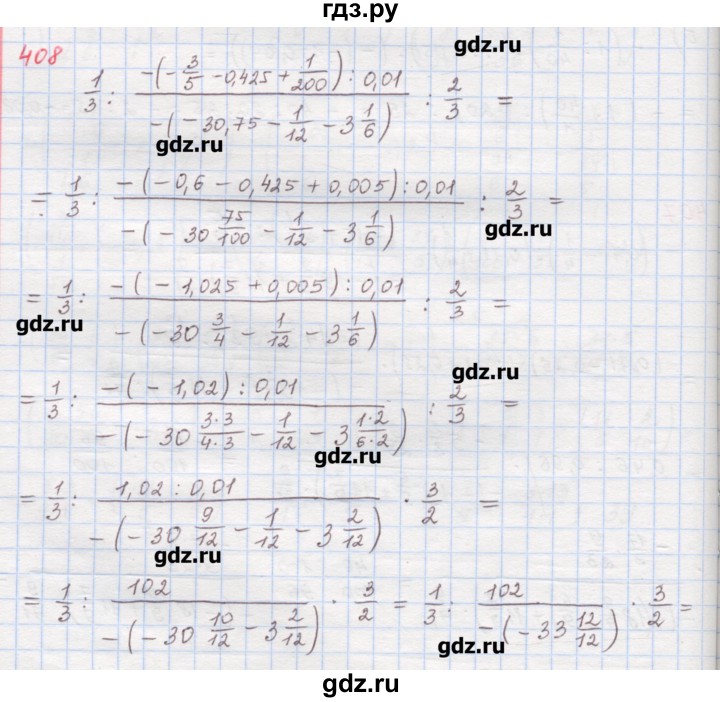 гдз.ру
408
gdz.ru
1/3 : (-(-3/5 - 0,425 + 1/200) : 0,01) / (-(-30,75 - 1/12 - 3 1/6)) : 2/3 =
gdz.ru
= 1/3 : (-(-0,6 - 0,425 + 0,005) : 0,01) / (-(-30 75/100 - 1/12 - 3 1/6)) : 2/3 =
gdz.ru
= 1/3 : (-(-1,025 + 0,005) : 0,01) / (-(-30 3/4 - 1/12 - 3 1/6)) : 2/3 =
gdz.ru
gdz.ru
= 1/3 : (-(-1,02) : 0,01) / (-(-30 3·3/4·3 - 1/12 - 3 1·2/6·2)) : 2/3 =
gdz.ru
= 1/3 : (1,02 : 0,01) / (-(-30 9/12 - 1/12 - 3 2/12)) · 3/2 =
gdz.ru
= 1/3 : 102 / (-(-30 10/12 - 3 2/12)) · 3/2 = 1/3 : 102 / (-(-33 12/12)) · 3/2 =
gdz.ru
gdz.ru